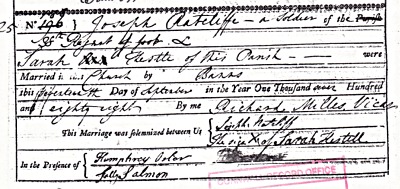 25 No 196 } Joseph Ratcliffe - a Soldier of the Parish
Regmt of foot &
Sarah Restle of this Parish - were
Married in this Church by Banns
this Seventeenth Day of September in the Year One Thousand Seven Hundred
and eighty eight By me Richard Milles Vicar
This Marriage was solemnized between Us { Joseph Ratcliff
The Mark X of Sarah Restell
In the Presence of { Humphrey
Salmon
RECORD OFFICE